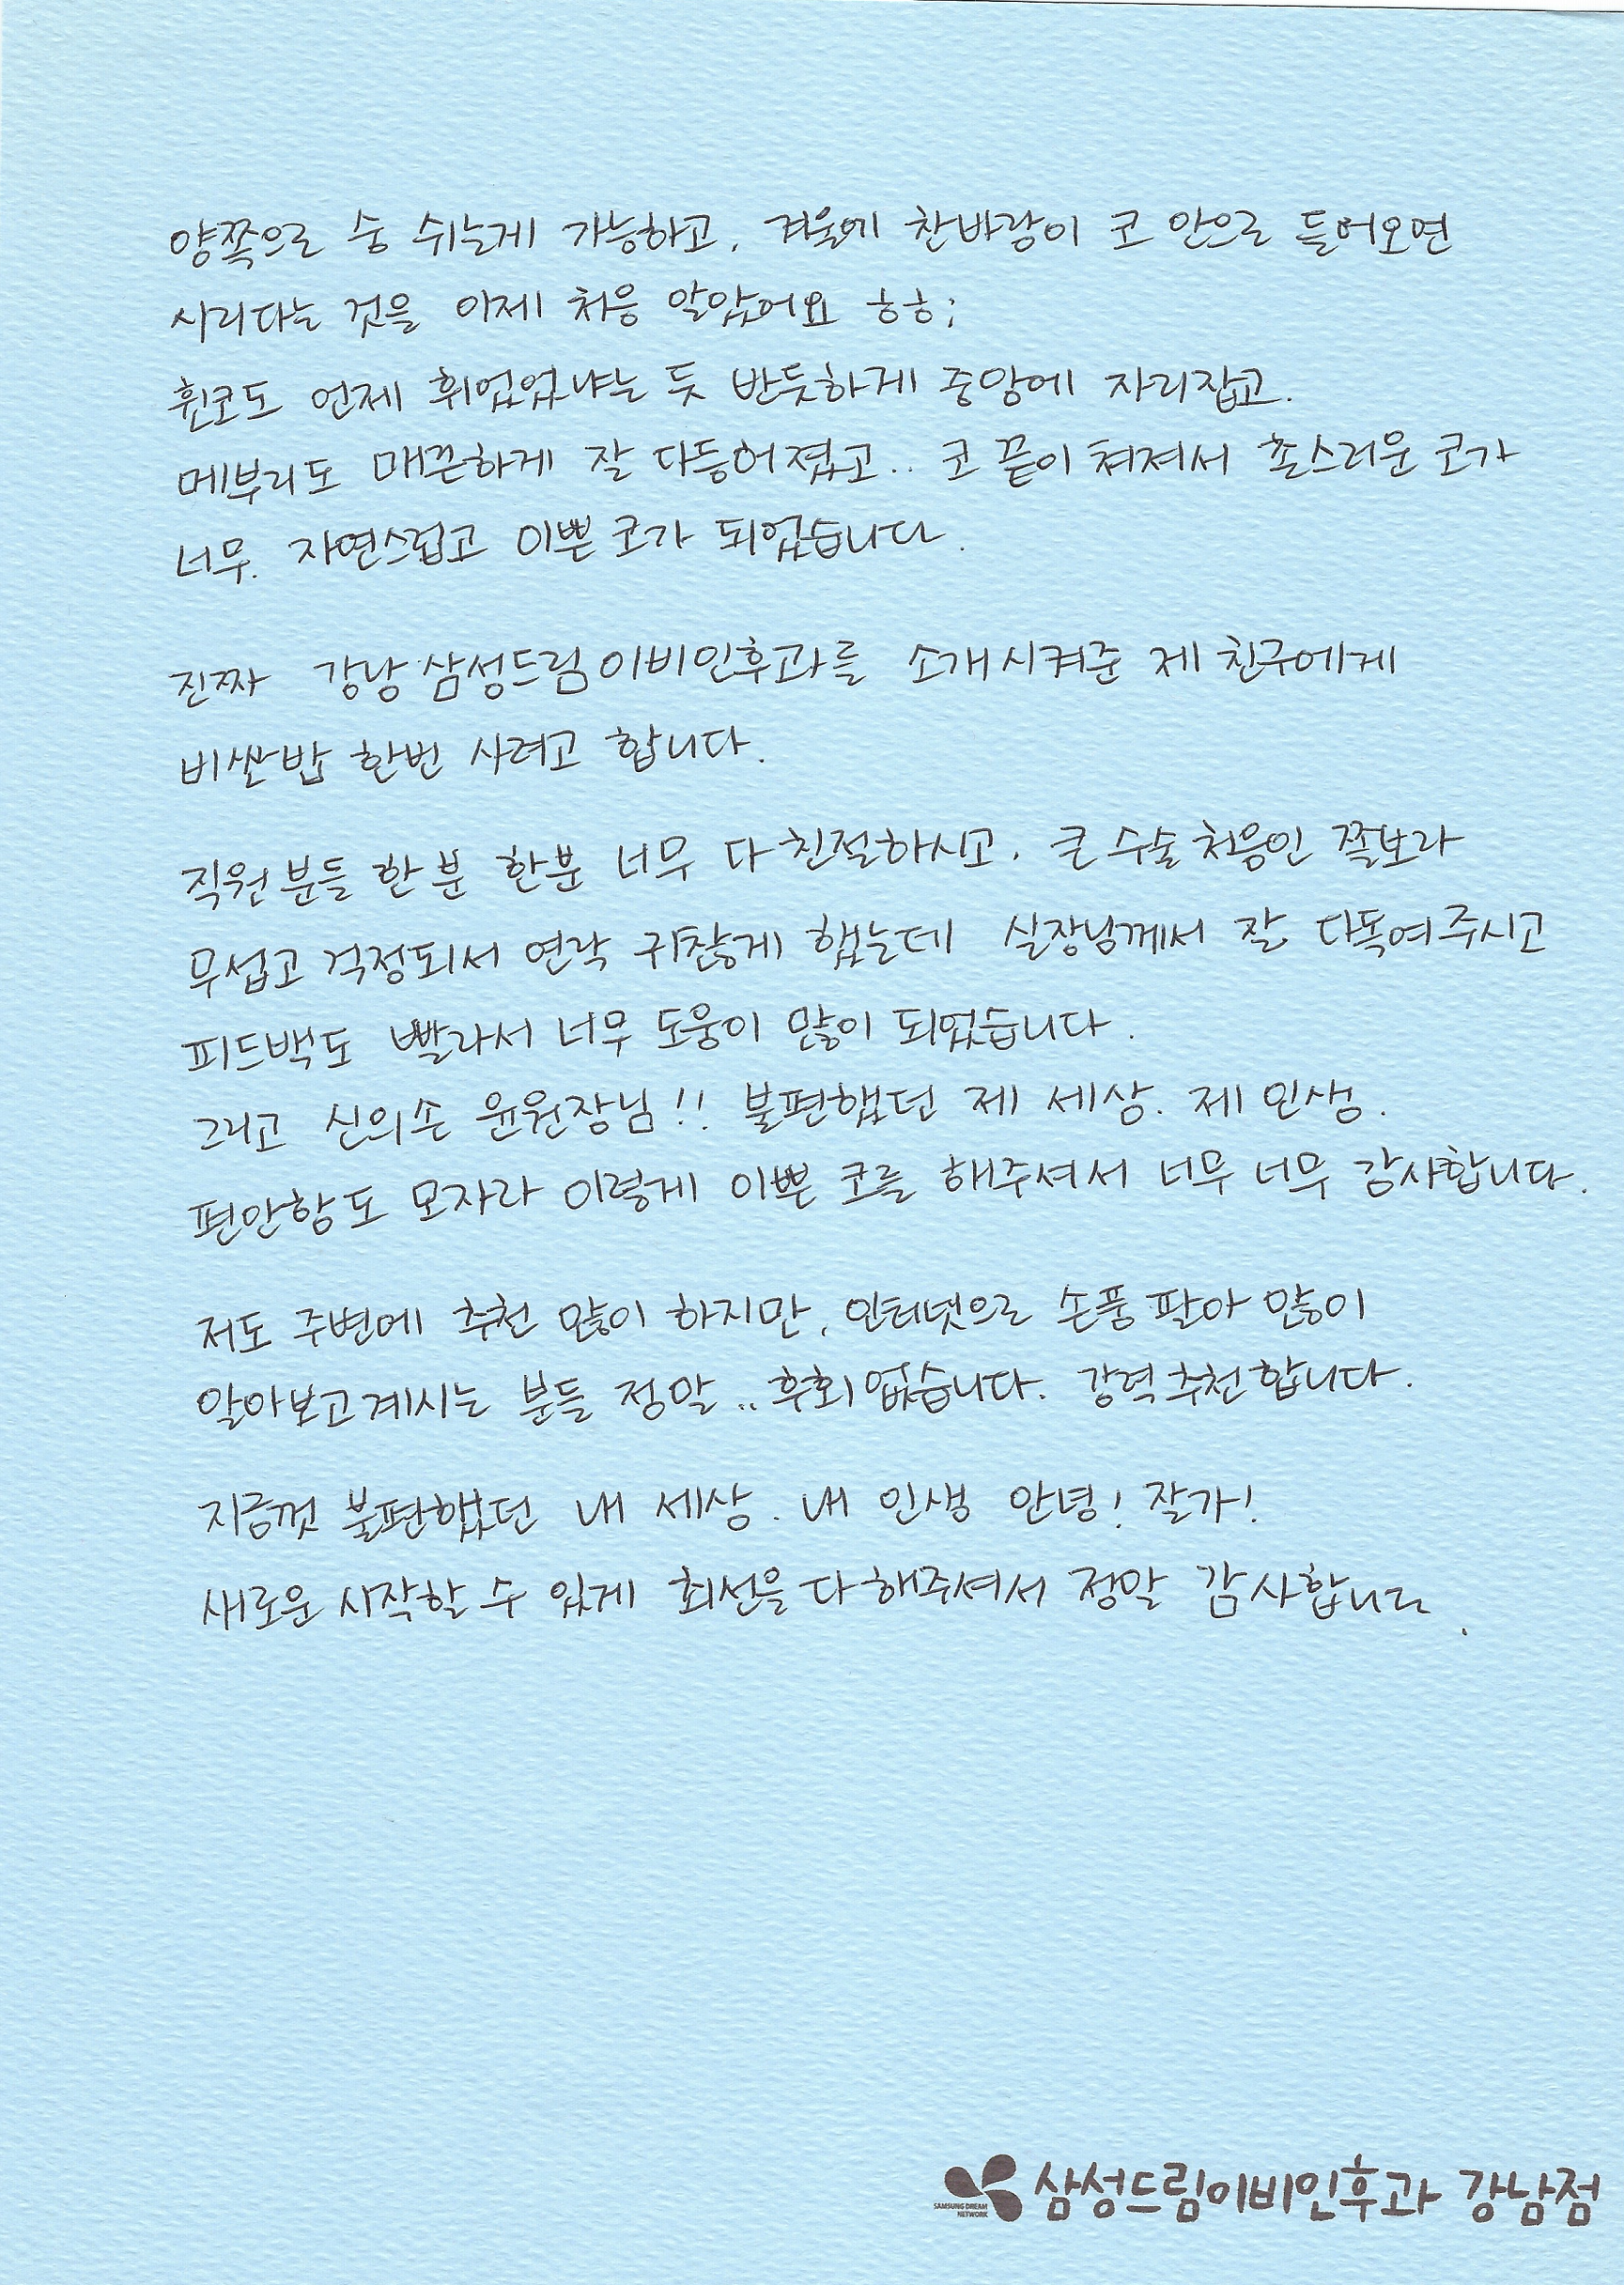 양쪽으로 숨 쉬는게 가능하고, 겨울에 찬바람이 코 안으로 들어오면
시리다는 것을 이제 처음 알았어요 ㅎㅎ;
휜코도 언제 휘었었냐는 듯 반듯하게 중앙에 자리잡고.
메부리도 매끈하게 잘 다듬어졌고.. 코 끝이 쳐져서 촌스러운 코가
너무. 자연스럽고 이쁜 코가 되었습니다.
진짜 강남 삼성드림이비인후과를 소개시켜준 제 친구에게
비싼밥 한번 사려고 합니다.
직원분들 한분 한분 너무 다 친절하시고, 큰 수술 처음인 쫄보라
무섭고 걱정되서 연락 귀찮게 했는데 실장님께서 잘 다독여주시고
피드백도 빨라서 너무 도움이 많이 되었습니다.
그리고 신의손 윤원장님!! 불편했던 제 세상. 제 인생.
편안함도 모자라 이렇게 이쁜 코를 해주셔서 너무 너무 감사합니다.
저도 주변에 추천 많이 하지만, 인터넷으로 손품 팔아 많이
알아보고계시는 분들 정말.. 후회없습니다. 강력추천합니다.
지금껏 불편했던 내 세상. 내 인생 안녕! 잘가!
새로운 시작할 수 있게 최선을 다해주셔서 정말 감사합니다.
SAMSUNG DREAM NETWORK
삼성드림이비인후과 강남점